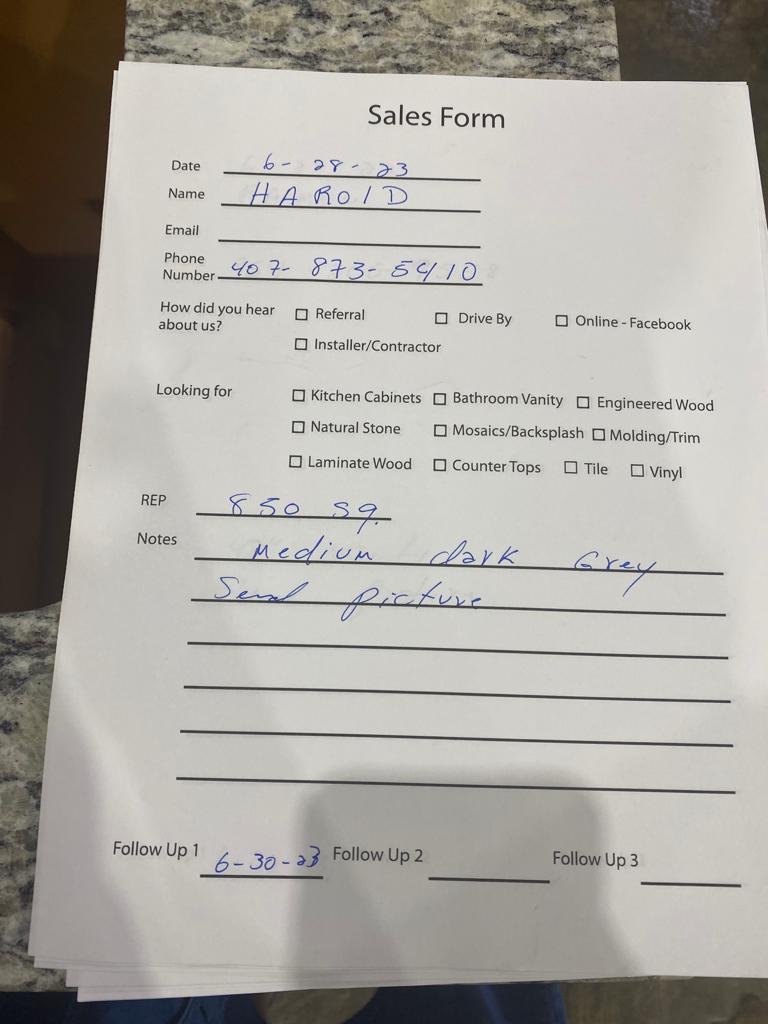 Sales Form
Date 6-28-23
Name HAROlD
Email
Phone
Number 407-873-5410
How did you hear
about us?
Referral Drive By Online - Facebook
Installer/Contractor
Looking for
Kitchen Cabinets Bathroom Vanity Engineered Wood
Natural Stone Mosaics/Backsplash Molding/Trim
Laminate Wood Counter Tops Tile Vinyl
REP 850 sq.
Notes Medium dark Grey
Send picture
Follow Up 1 6-30-23 Follow Up 2 Follow Up 3